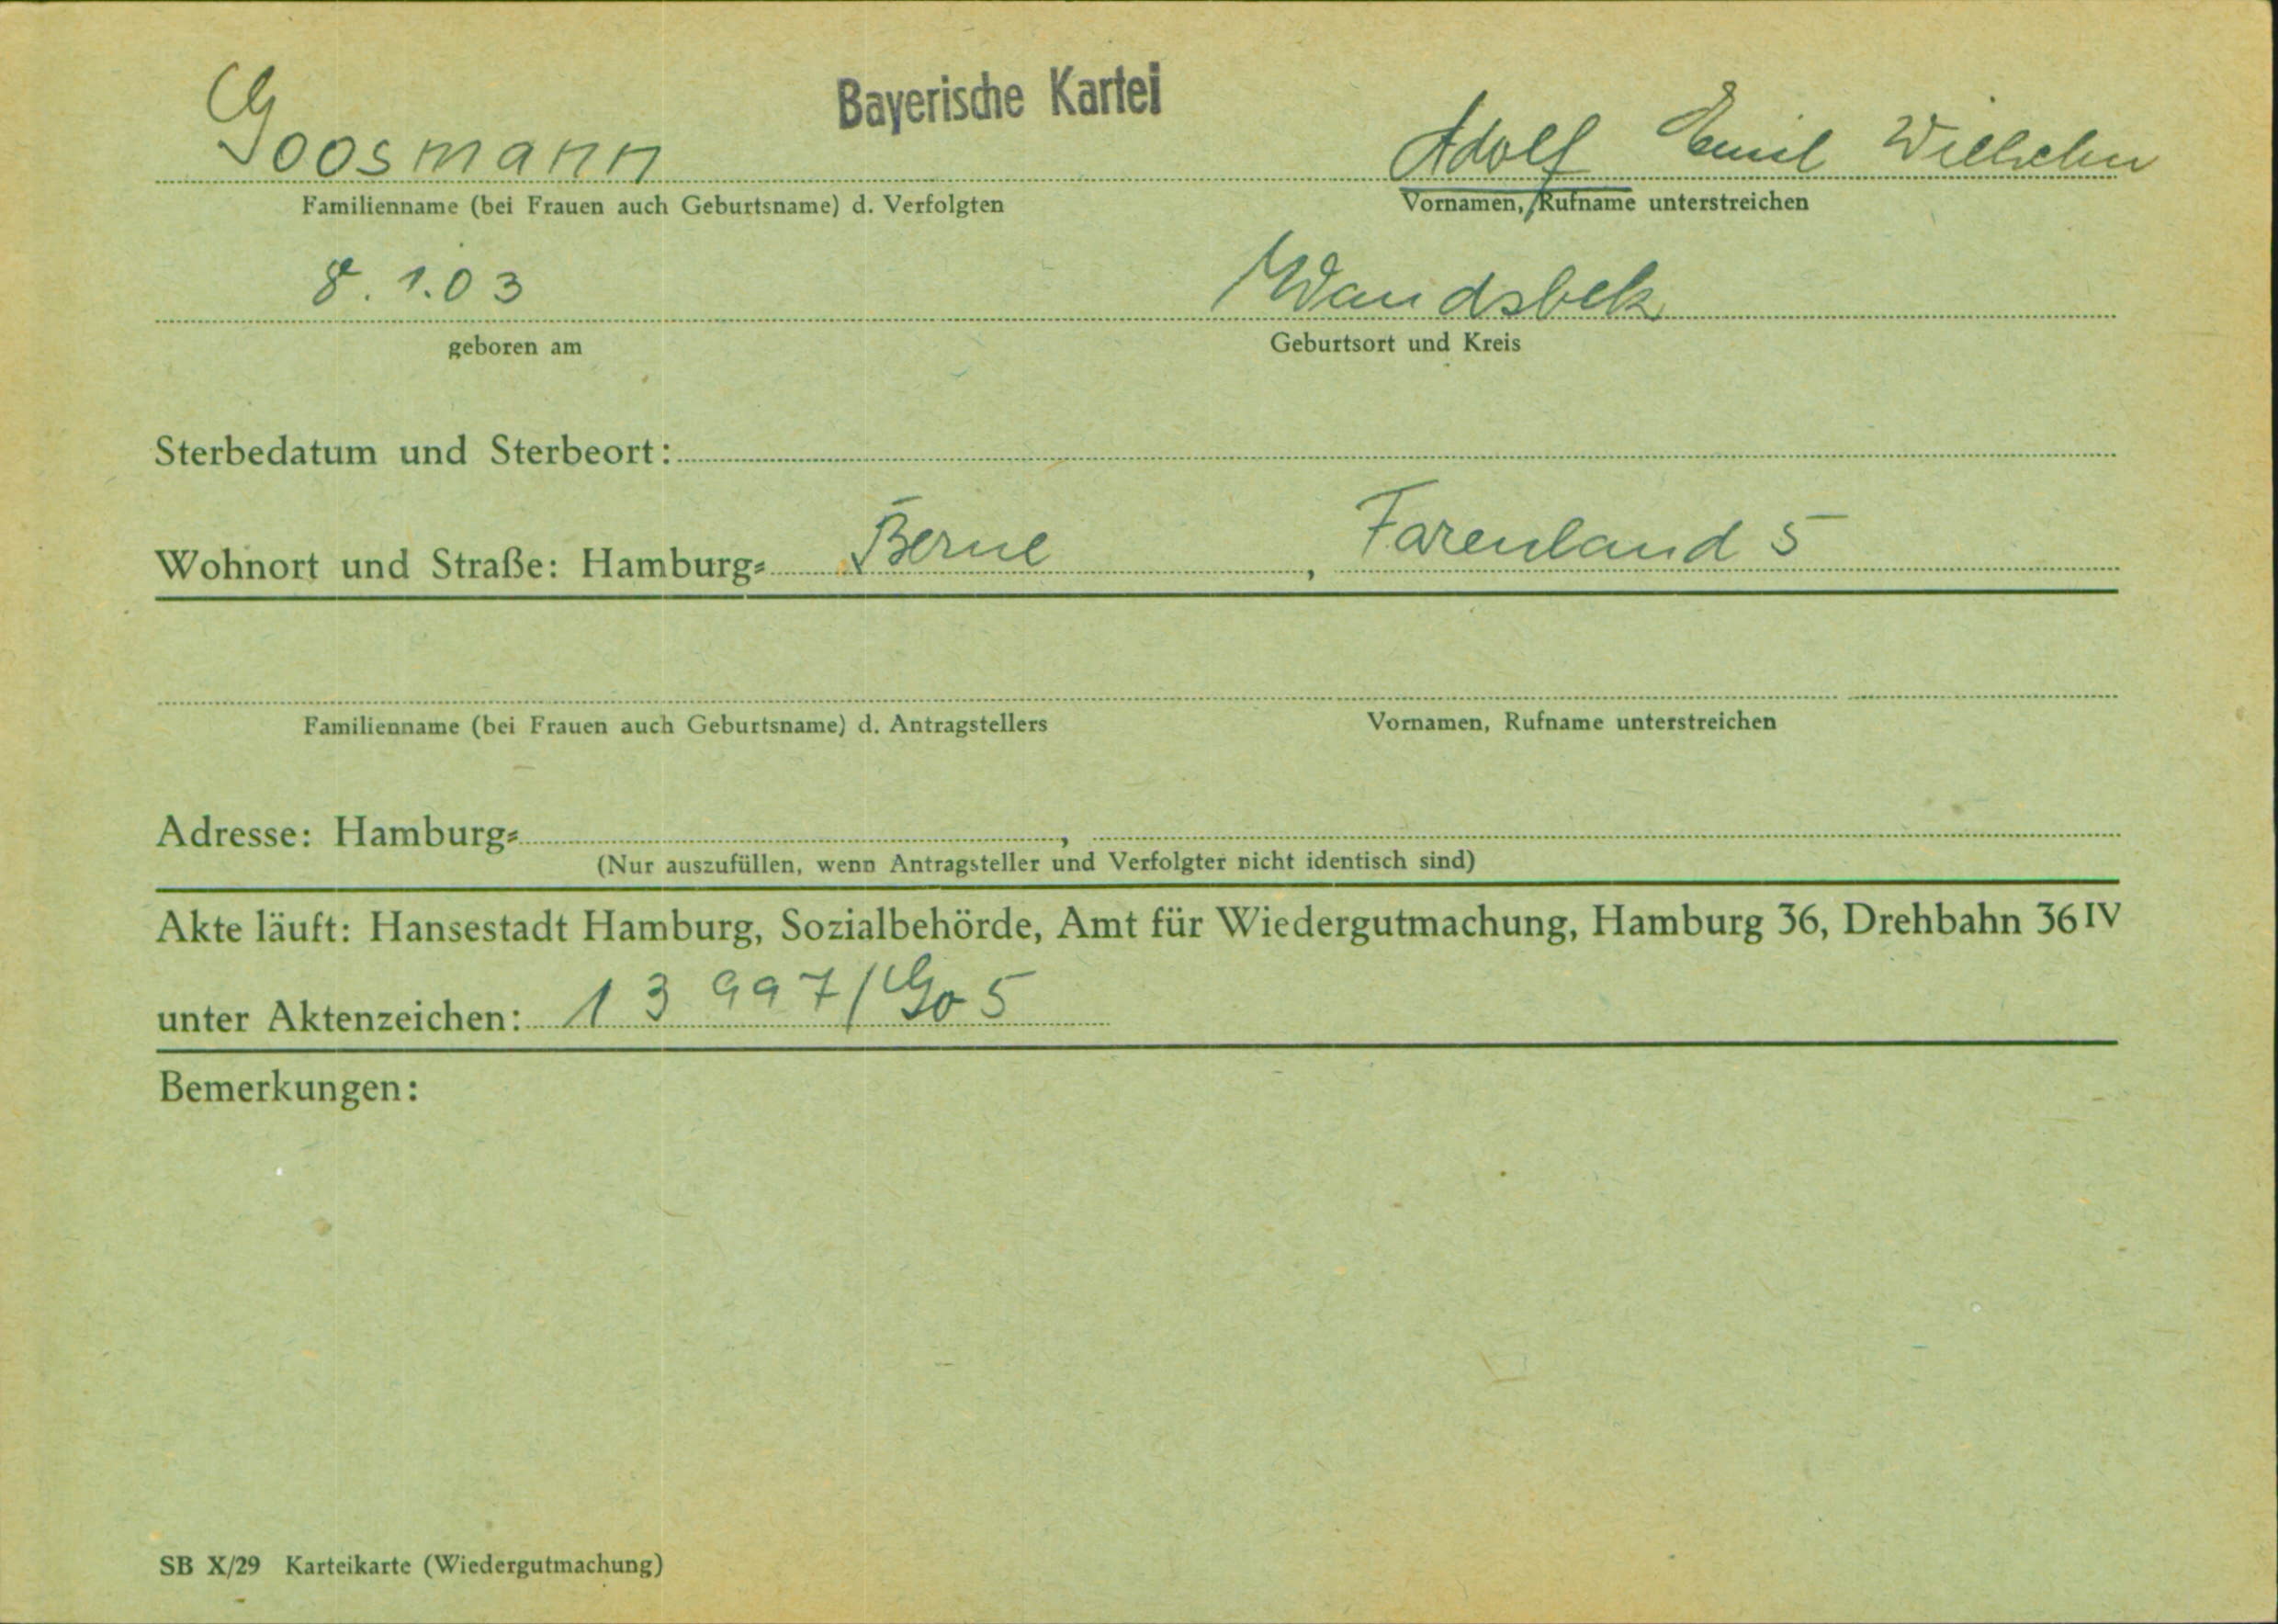 Bayerische Kartei
Goosmann Adolf Emil Wilhelm
Familienname (bei Frauen auch Geburtsname) d. Verfolgten Vornamen, Rufname unterstreichen
8.1.03 Wandsbek
geboren am Geburtsort und Kreis
Sterbedatum und Sterbeort:
Wohnort und Straße: Hamburg= Berne , Farenland 5
Familienname (bei Frauen auch Geburtsname) d. Antragstellers Vornamen, Rufname unterstreichen
Adresse: Hamburg= ,
(Nur auszufüllen, wenn Antragsteller und Verfolgter nicht identisch sind)
Akte läuft: Hansestadt Hamburg, Sozialbehörde, Amt für Wiedergutmachung, Hamburg 36, Drehbahn 36 IV
unter Aktenzeichen: 13 997/Go 5
Bemerkungen:
SB X/29 Karteikarte (Wiedergutmachung)